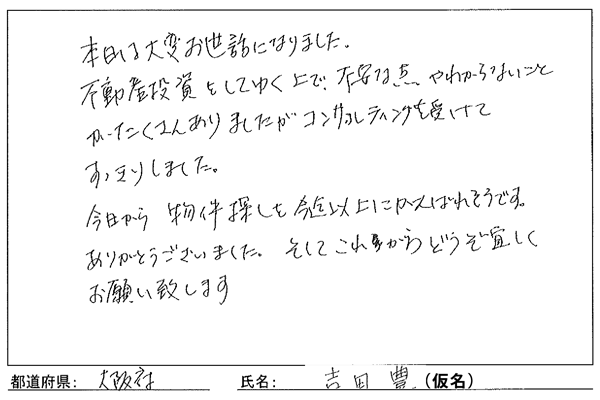 本日は大変お世話になりました。
不動産投資をしてゆく上で、不安な点やわからないこと
がたくさんありましたがコンサルティングを受けて
すっきりしました。
今日から物件探しを今迄以上にがんばれそうです。
ありがとうございました。そしてこれからどうぞ宜しく
お願い致します
都道府県： 大阪府 氏名： 吉田 豊 （仮名）